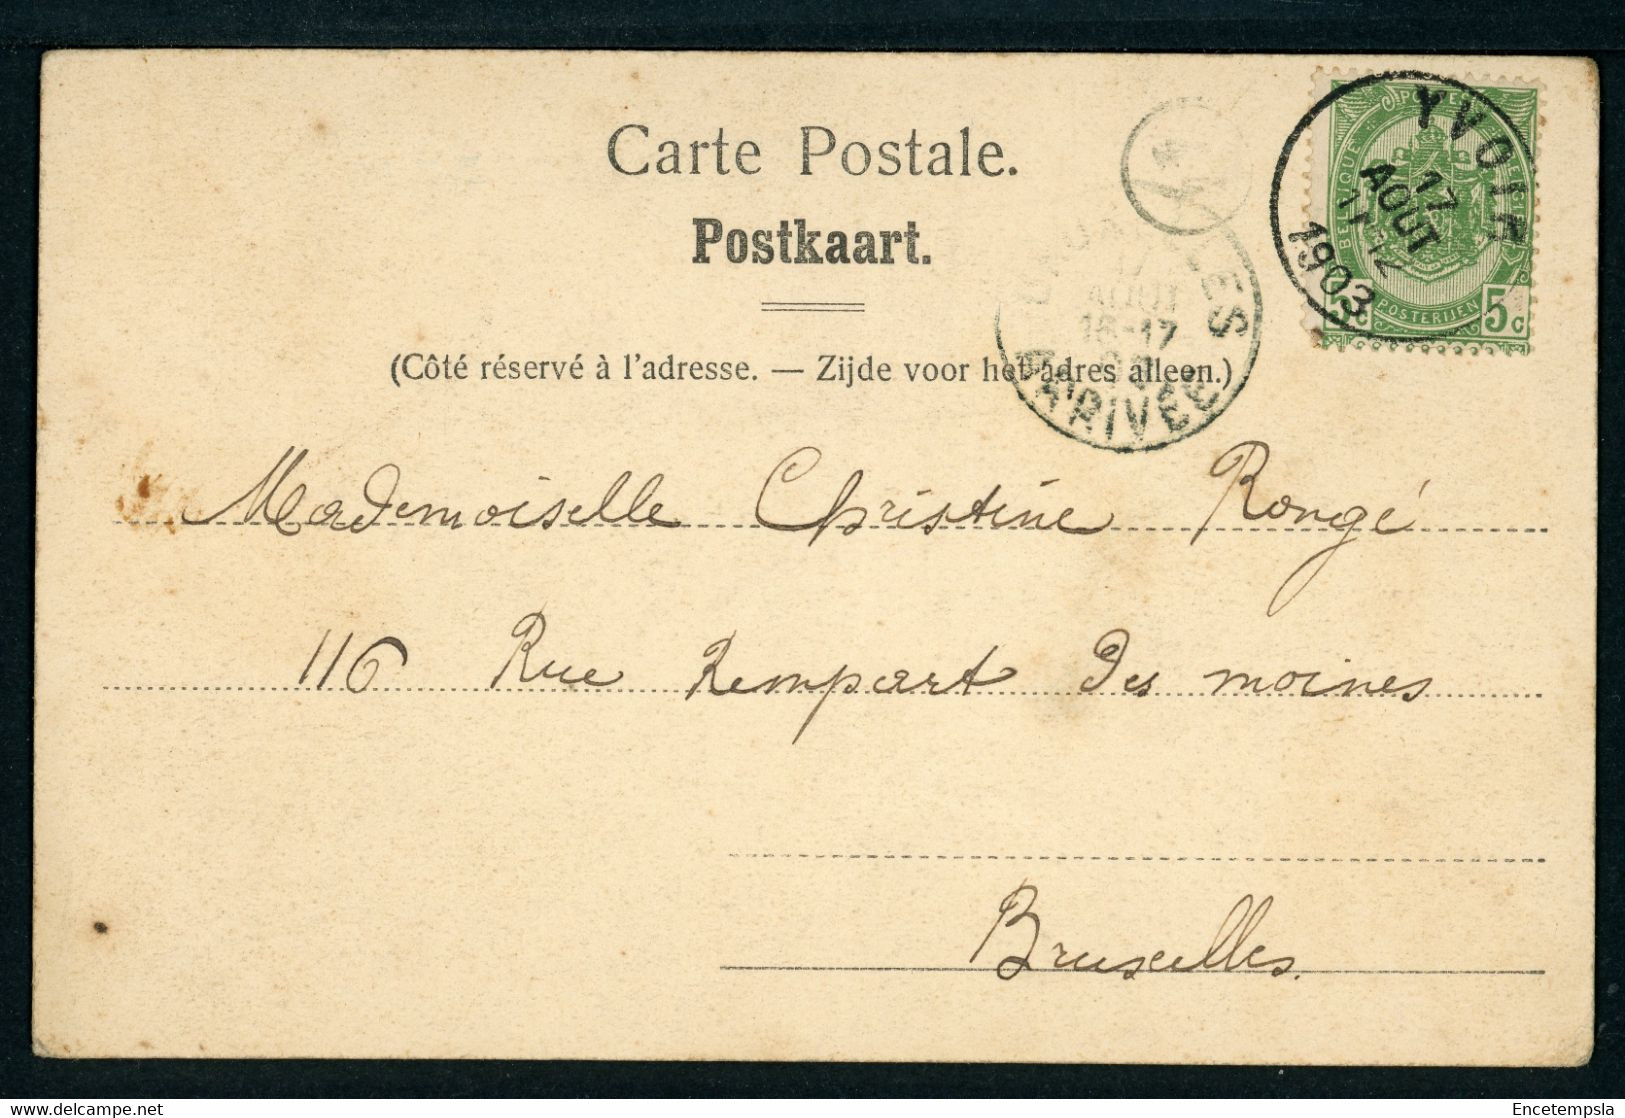 Carte Postale.
Postkaart.
(Côté réservé à l'adresse. — Zijde voor het adres alleen.)
YVOIR
17
AOUT
11-12
1903
BELGIQUE
POSTERIJEN
5c 5c
AOUT
16-17
ARRIVÉE
Mademoiselle Christine Rongé
116 Rue Rempart Des moines
Bruxelles.
delcampe.net
Encetempsla